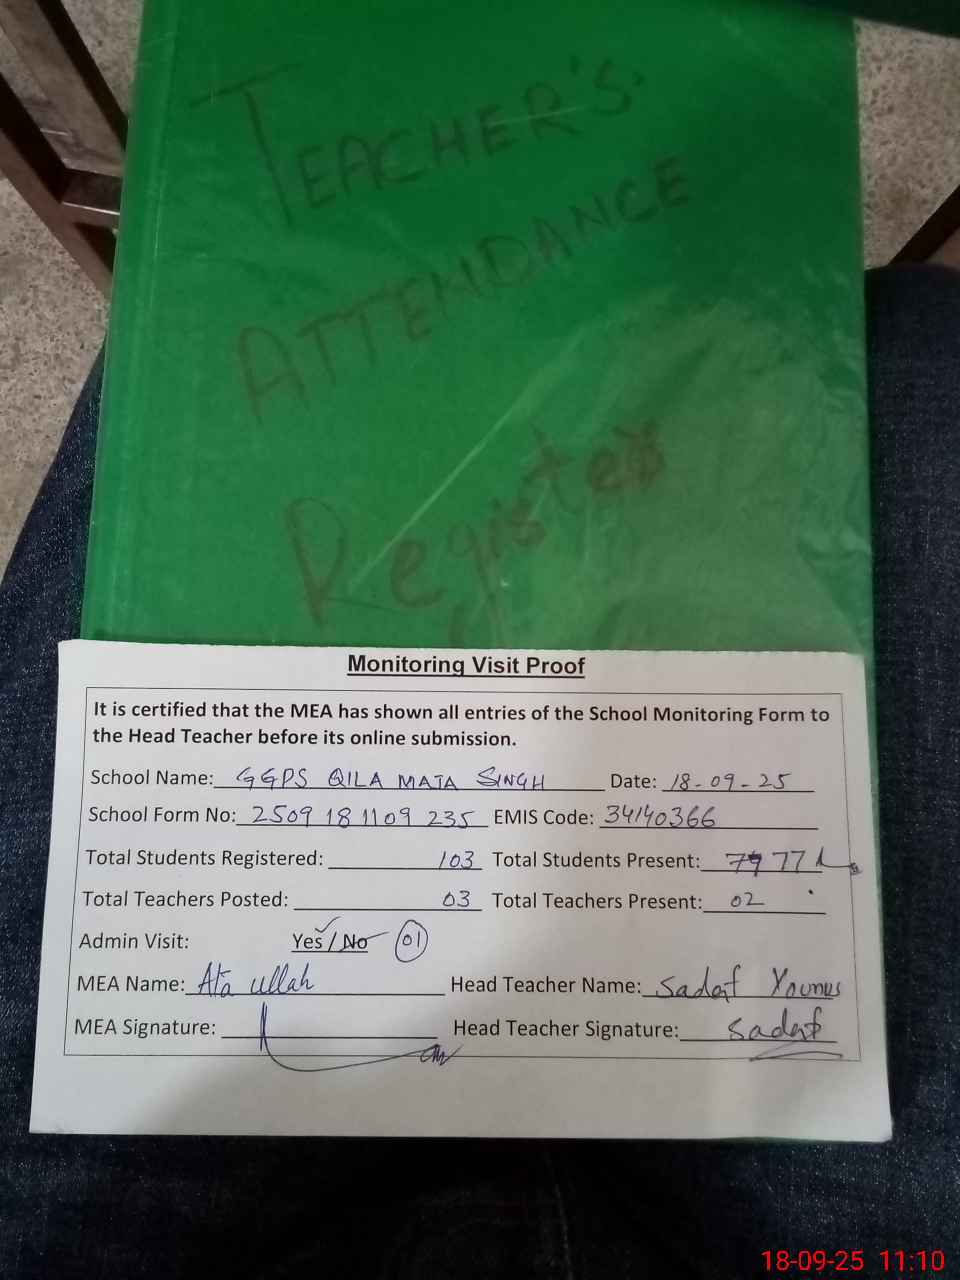 TEACHER'S
ATTENDANCE
Register
Monitoring Visit Proof
It is certified that the MEA has shown all entries of the School Monitoring Form to
the Head Teacher before its online submission.
School Name: GGPS QILA MATA SINGH Date: 18-09-25
School Form No: 2509 18 1109 235 EMIS Code: 34140366
Total Students Registered: 103 Total Students Present: 77
Total Teachers Posted: 03 Total Teachers Present: 02
Admin Visit: Yes / No 01
MEA Name: Ata ullah Head Teacher Name: Sadaf Younus
MEA Signature: Head Teacher Signature: Sadaf
18-09-25 11:10